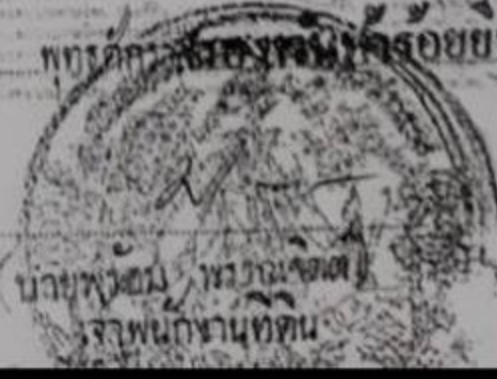 พุทธศักราชสองพันห้าร้อยยี่
นายพร้อม
เจ้าพนักงานที่ดิน